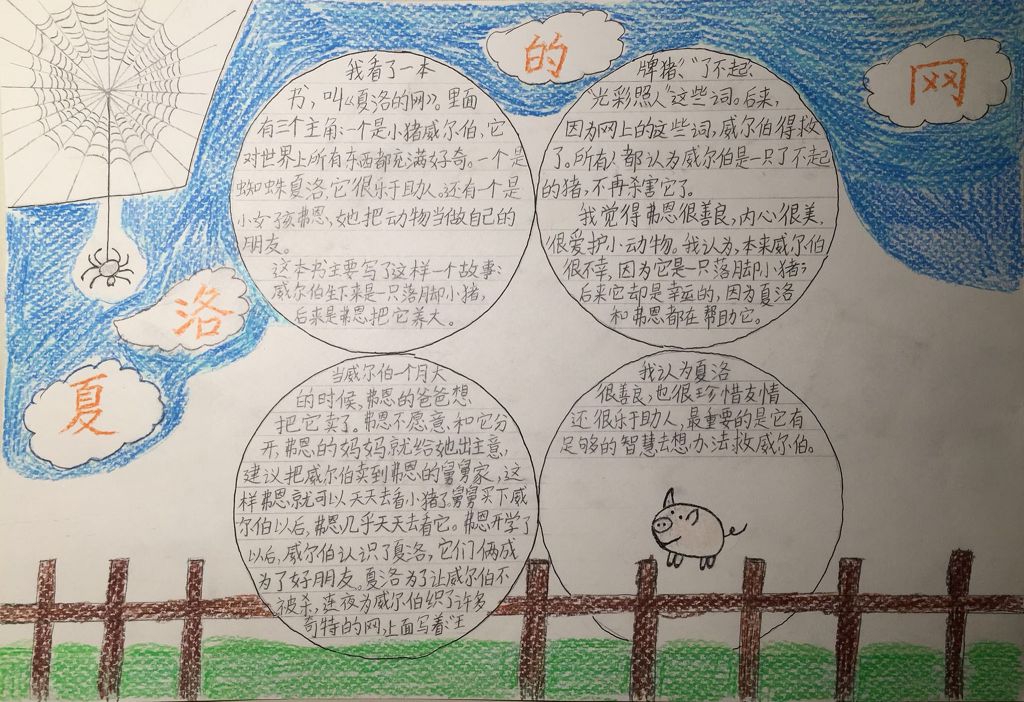 夏
洛
的
网
我看了一本
书，叫《夏洛的网》。里面
有三个主角：一个是小猪威尔伯，它
对世界上所有东西都充满好奇。一个是
蜘蛛夏洛，它很乐于助人。还有一个是
小女孩弗恩，她把动物当做自己的
朋友。
这本书主要写了这样一个故事：
威尔伯生下来是一只落脚小猪，
后来是弗恩把它养大。
当威尔伯一个月大
的时候，弗恩的爸爸想
把它卖了。弗恩不愿意和它分
开，弗恩的妈妈就给她出主意，
建议把威尔伯卖到弗恩的舅舅家，这
样弗恩就可以天天去看小猪了。舅舅买下威
尔伯以后，弗恩几乎天天去看它。弗恩开学了
以后，威尔伯认识了夏洛，它们俩成
为了好朋友。夏洛为了让威尔伯不
被杀，连夜为威尔伯织了许多
奇特的网，上面写着“王
牌猪”、“了不起”、
“光彩照人”这些词。后来，
因为网上的这些词，威尔伯得救
了。所有人都认为威尔伯是一只了不起
的猪，不再杀害它了。
我觉得弗恩很善良，内心很美，
很爱护小动物。我认为，本来威尔伯
很不幸，因为它是一只落脚小猪；
后来它却是幸运的，因为夏洛
和弗恩都在帮助它。
我认为夏洛
很善良，也很珍惜友情
还很乐于助人，最重要的是它有
足够的智慧去想办法救威尔伯。